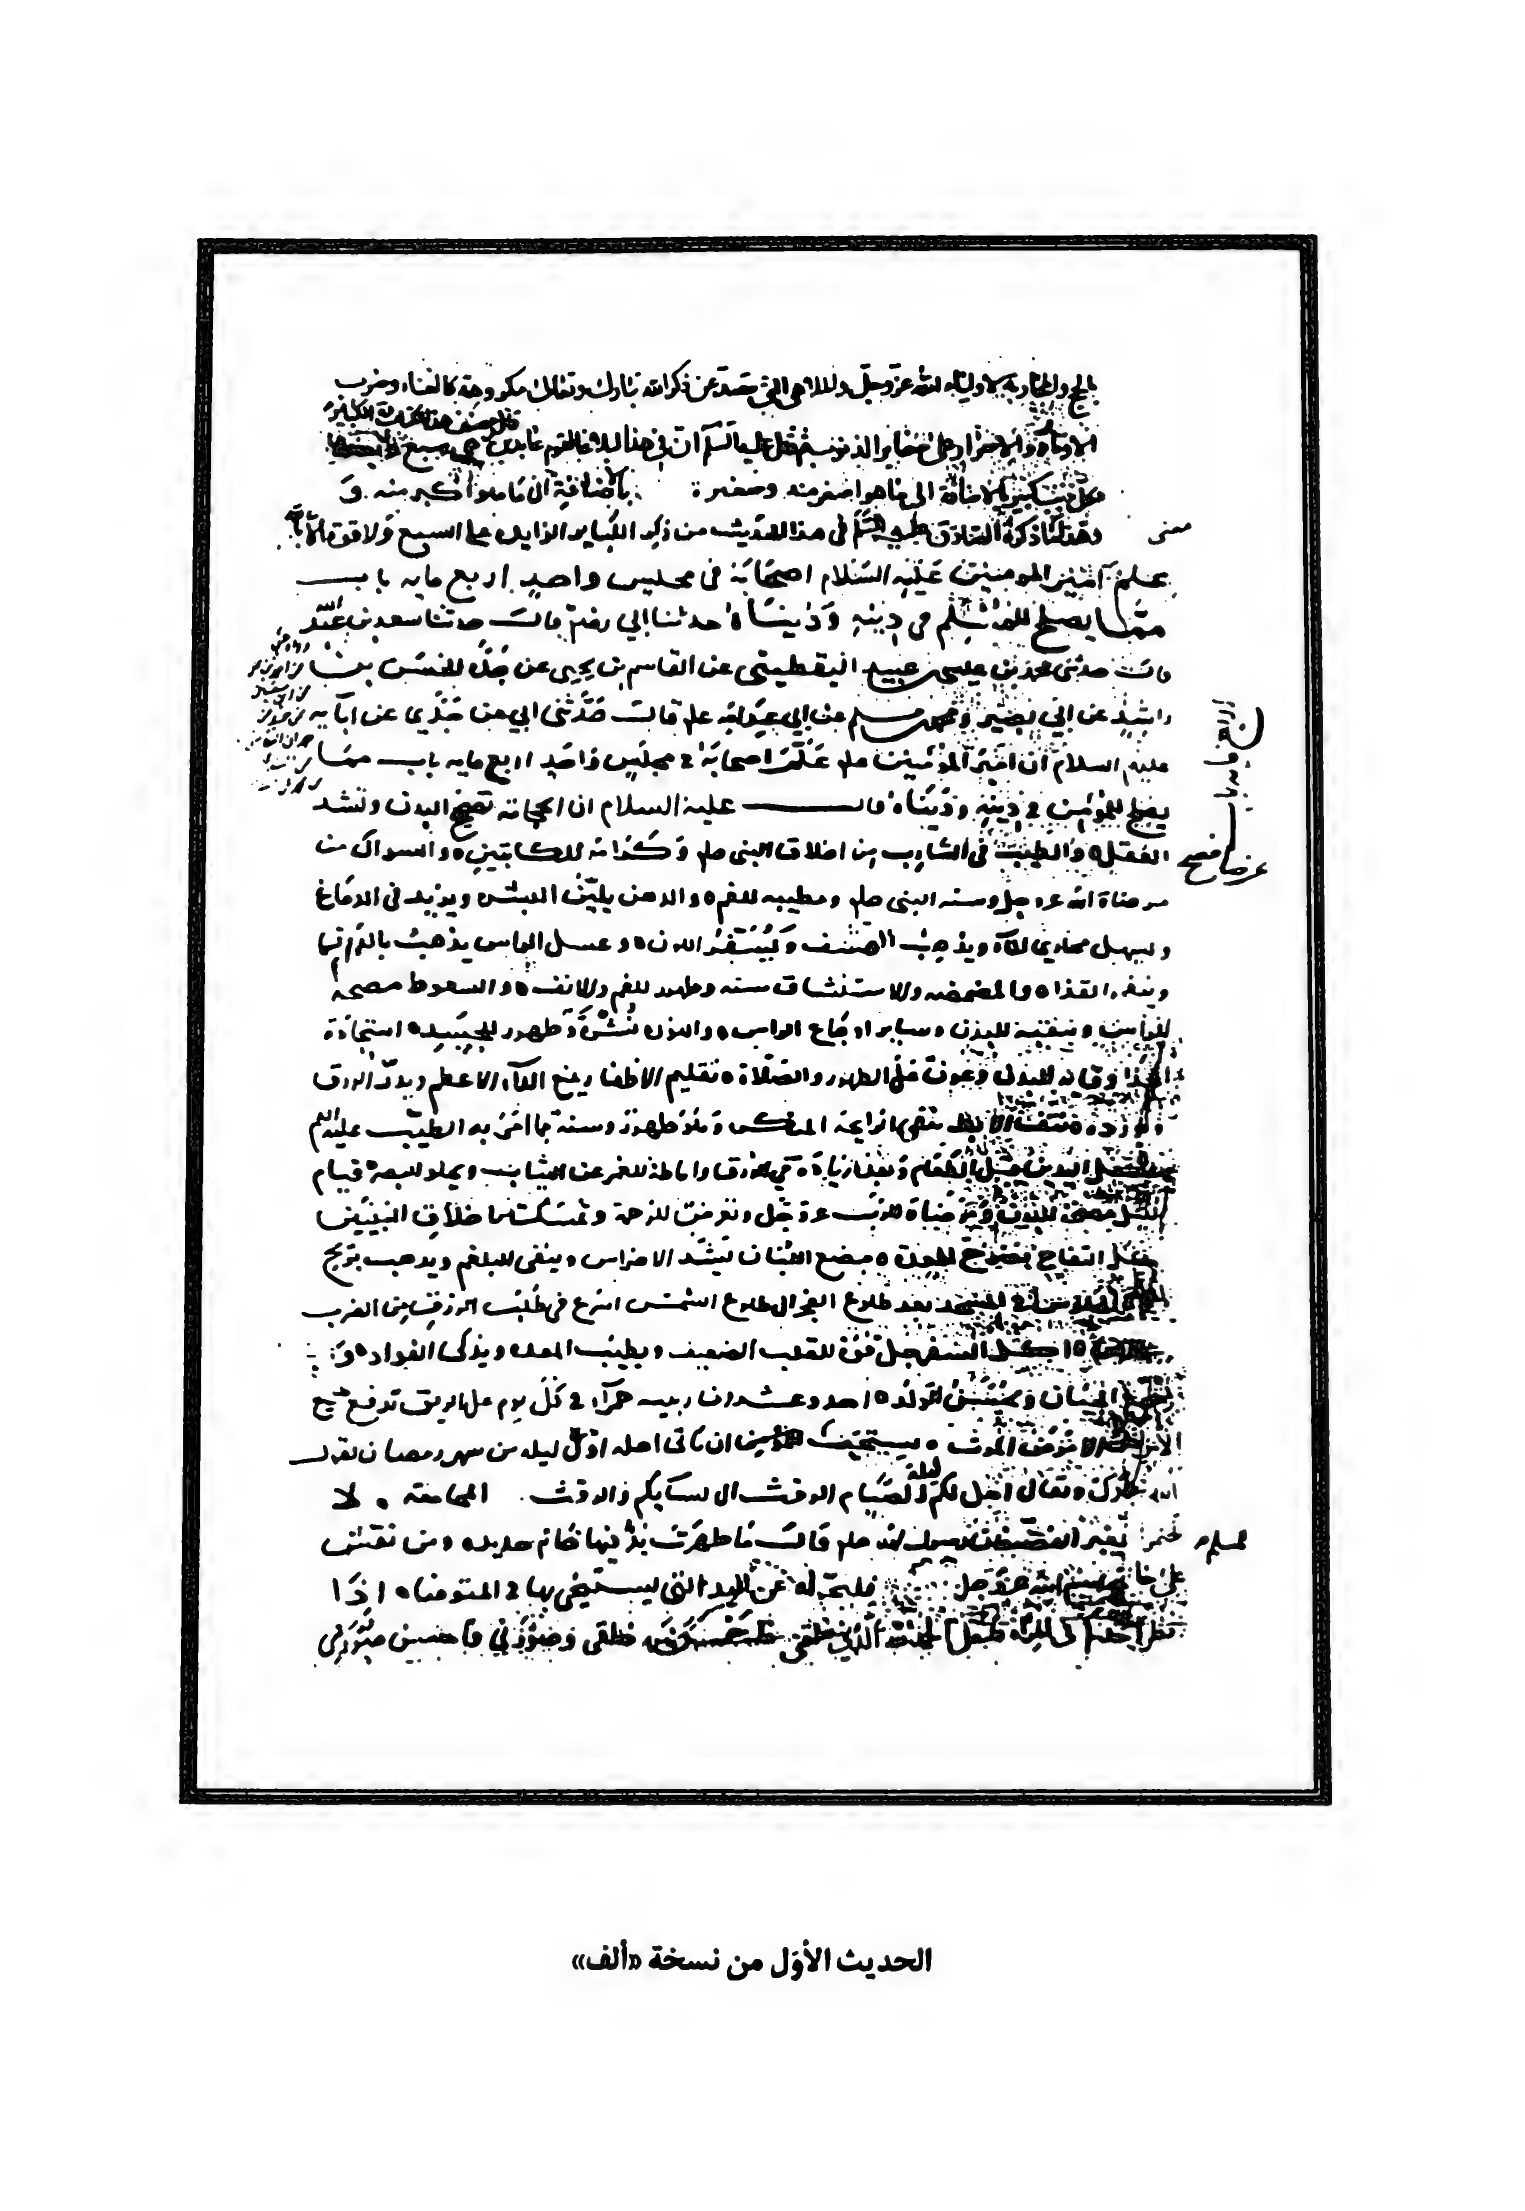 بالحج والمحاربة لاولياء الله عز وجل والملاهي التي تصد عن ذكر الله تبارك وتعالى مكروهة كالغناء وضرب
الاوتار والاصرار على صغاير الذنوب ثم قال عليه السلم ان في هذا لبلاغا لقوم عابدين
قال مصنف هذا الكتاب الكباير هي سبع
الى ما هو اصغر منه وصغيرة بالاضافة الى ما هو اكبر منه و
معنى
ما ذكره الصادق عليه السلم في هذا الحديث من ذكر الكباير الزايده على السبع ولا قوة الا بالله
علم امير المومنين عليه السلام اصحابه في مجلس واحد اربع مايه باب
مما يصلح للمسلم في دينه ودنياه حدثنا ابي رضي قال حدثنا سعد بن عبد الله
قال حدثني محمد بن عيسى بن عبيد اليقطيني عن القاسم بن يحيى عن جده الحسن بن
راشد عن ابي بصير ومحمد بن مسلم عن ابي عبد الله علم قال حدثني ابي عن جدي عن ابآيه
عليهم السلام ان امير المؤمنين علم علم اصحابه في مجلس واحد اربع مايه باب مما
يصلح للمؤمن في دينه ودنياه قال عليه السلام ان الحجامة تصحح البدن وتشد
العقل والطيب في الشارب من اخلاق النبي صلم وكرامة للكاتبين والسواك من
مرضاة الله عز وجل وسنه النبي صلم ومطيبه للفم والدهن يلين البشر ويزيد في الدماغ
ويسهل مجاري المآء ويذهب القشف ويسفر اللون وغسل الراس يذهب بالدرن
وينفي القذا والمضمضه والاستنشاق سنه وطهور للفم والانف والسعوط مصحة
للراس وتنقية للبدن وساير اوجاع الراس والنوره نشرة وطهور للجسد استجادة
الحذا وقايه للبدن وعون على الطهور والصلاة تقليم الاظفار يمنع الدآء الاعظم ويدر الرزق
ويورده ونتف الابط ينفي الرايحة المنكره وهو طهور وسنة مما امر به الطيب عليه السلم
غسل اليدين قبل الطعام وبعده زيادة في الرزق واماطة للغمر عن الثياب ويجلو البصر قيام
الليل مصحة للبدن ومرضاة للرب عز وجل وتعرض للرحمة وتمسك باخلاق النبيين
اكل التفاح نضوح للمعدة مضغ اللبان يشد الاضراس وينفي البلغم ويذهب بريح
الفم الجلوس في المسجد بعد طلوع الفجر الى طلوع الشمس اسرع في طلب الرزق من الضرب
في الارض اكل السفرجل قوة للقلب الضعيف ويطيب المعده ويذكي الفواد و
يشجع الجبان ويحسن الولد احد وعشرون زبيبه حمرآء في كل يوم على الريق تدفع جميع
الامراض الا مرض الموت يستحب للمسلم ان ياتي اهله اول ليله من شهر رمضان لقول
الله تبارك وتعالى احل لكم ليلة الصيام الرفث الى نسآيكم والرفث المجامعة لا
تختموا بغير الفضة فان رسول الله صلم قال ما طهرت يد فيها خاتم حديد ومن نقش
على خاتمه اسم الله عز وجل فليحوله عن اليد التي يستنجي بها في المتوضا اذا
نظر احدكم الى المرآة فليقل الحمد لله الذي خلقني فاحسن خلقي وصورني فاحسن صورتي
الحديث الأوّل من نسخة «ألف»